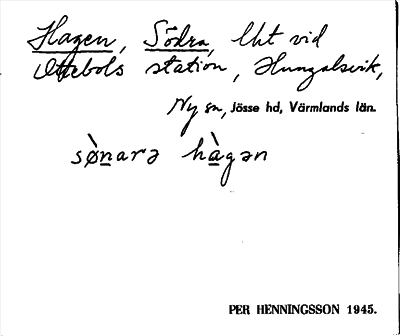 Hagen, Södra, lht vid
Ottebols station, Hungalsvik,
Ny sn, Jösse hd, Värmlands län.
sø̀narə hàgən
PER HENNINGSSON 1945.